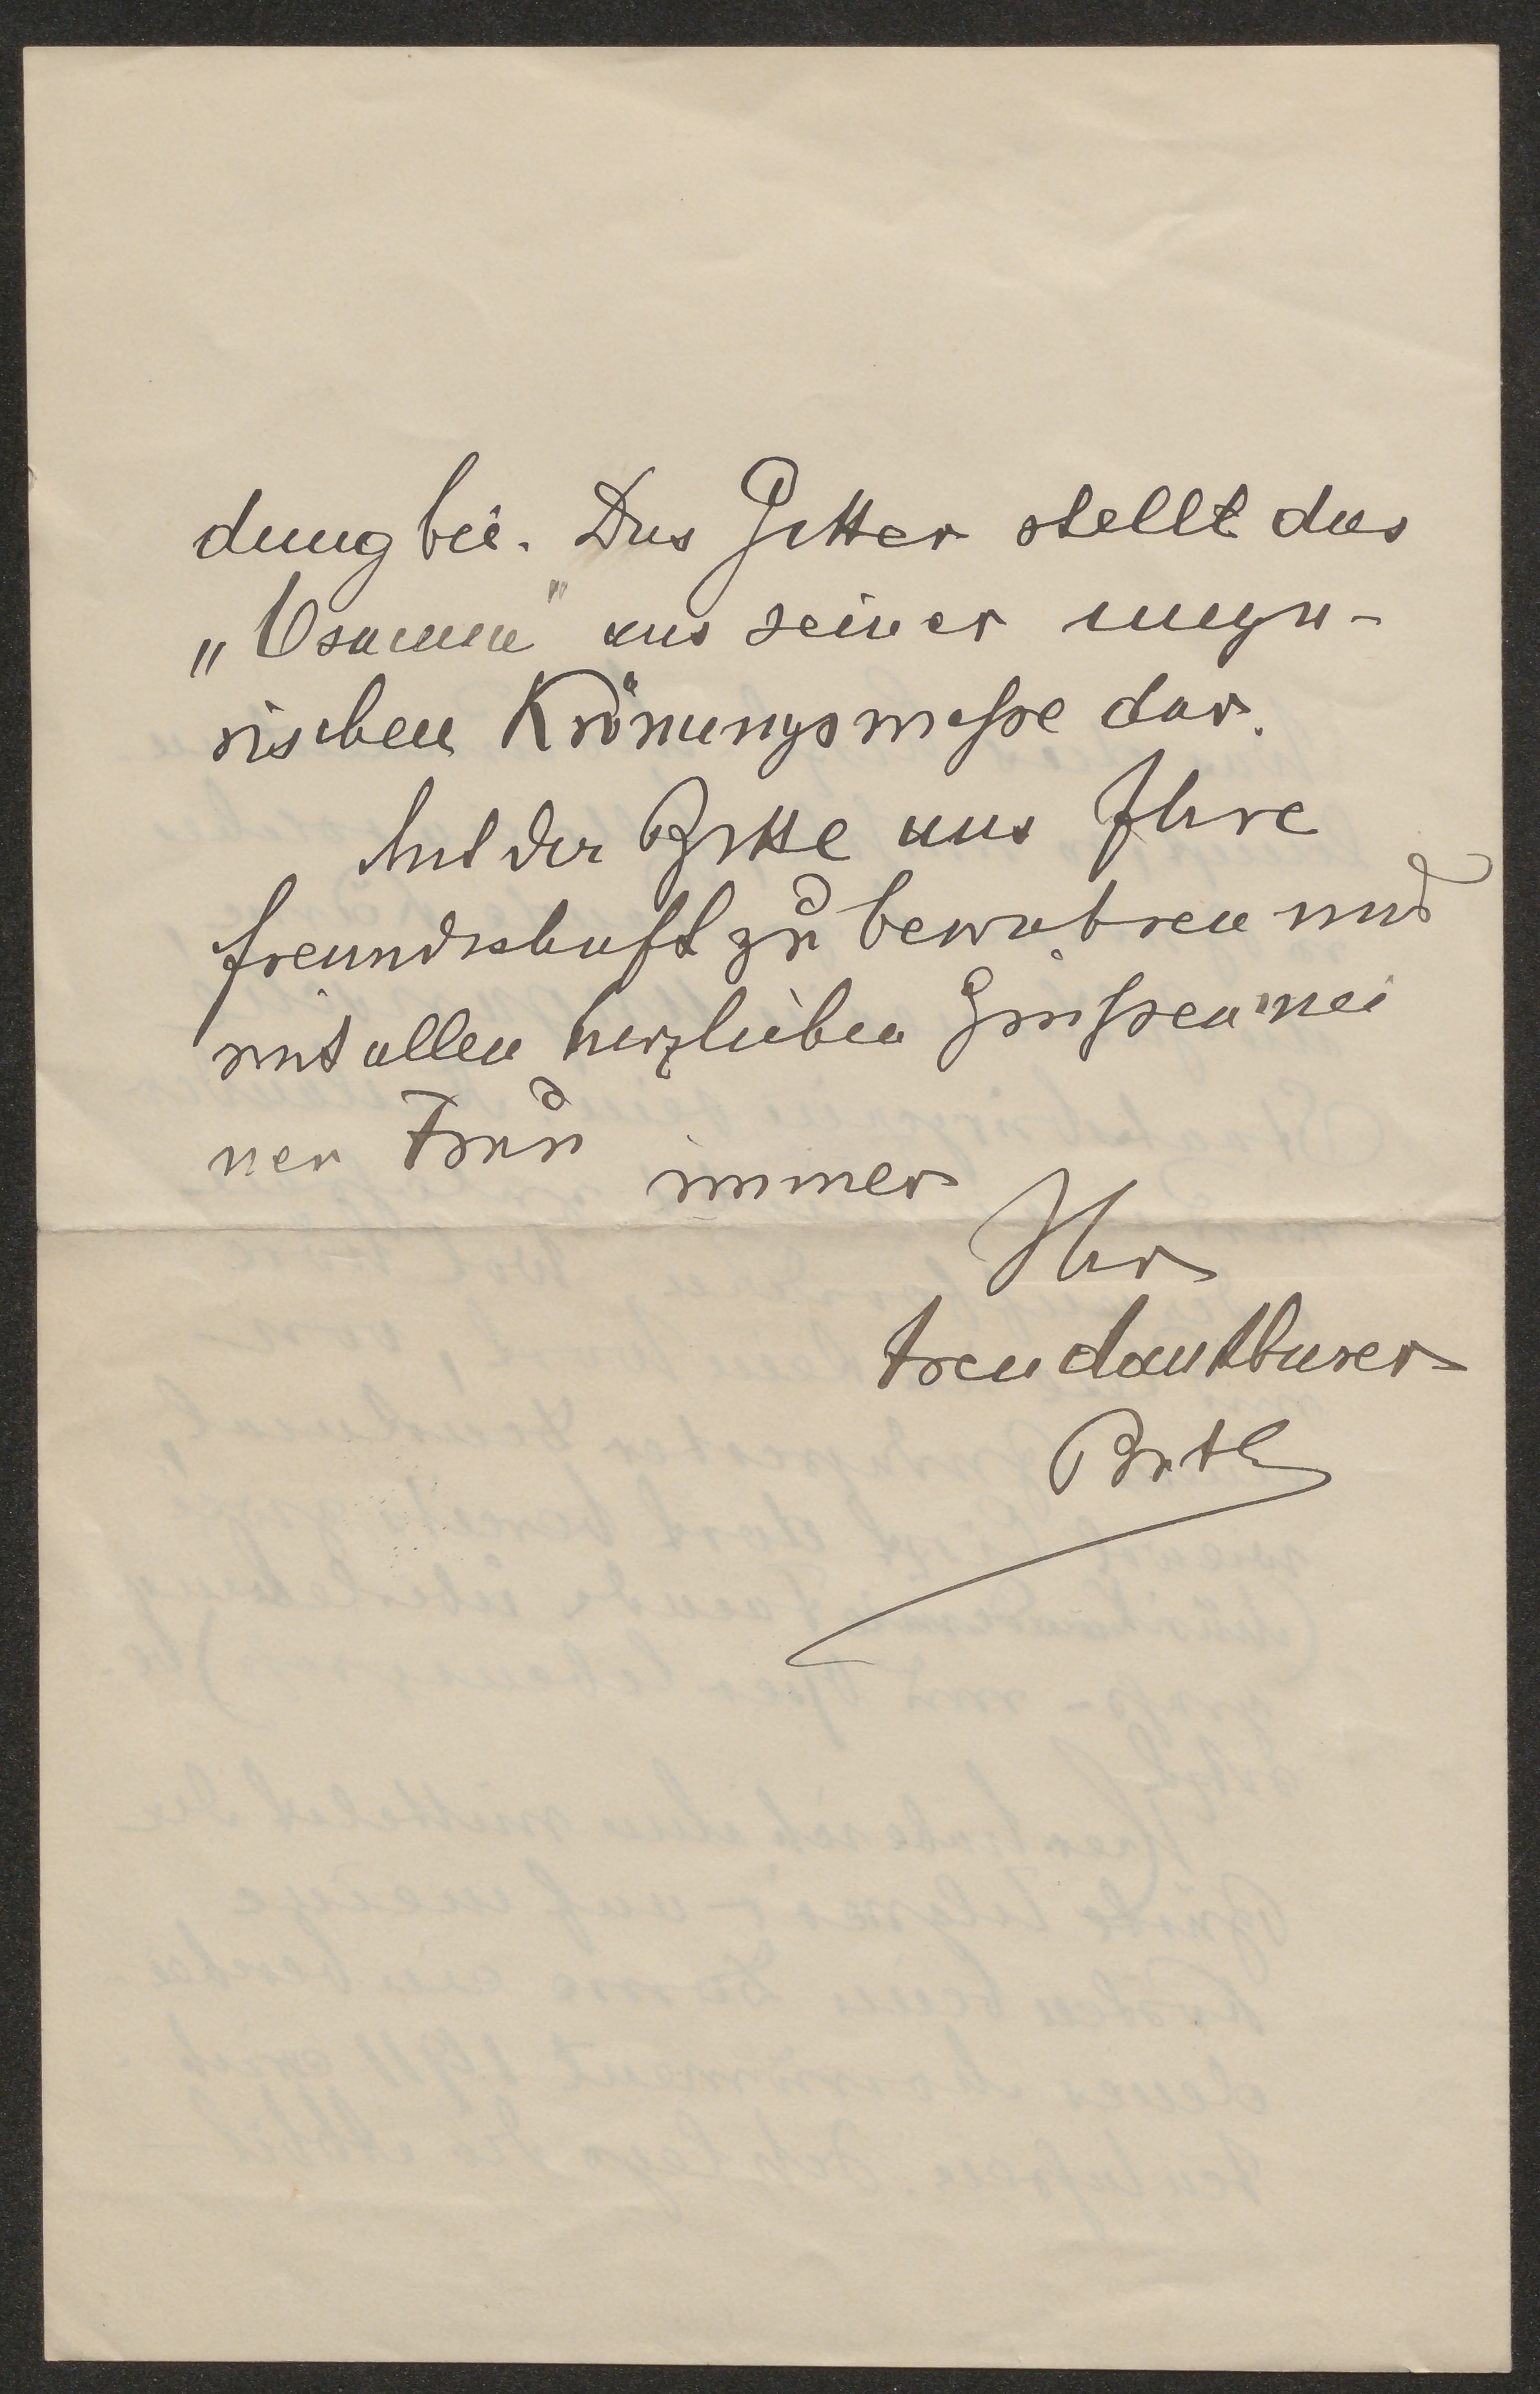 dung bei. Das Gitter stellt das
„Osanna" aus seiner unga-
rischen Krönungsmesse dar.
Mit der Bitte uns Ihre
Freundschaft zu bewahren und
mit allen herzlichen Grüssen mei
ner Frau
immer
Ihr
treu dankbarer